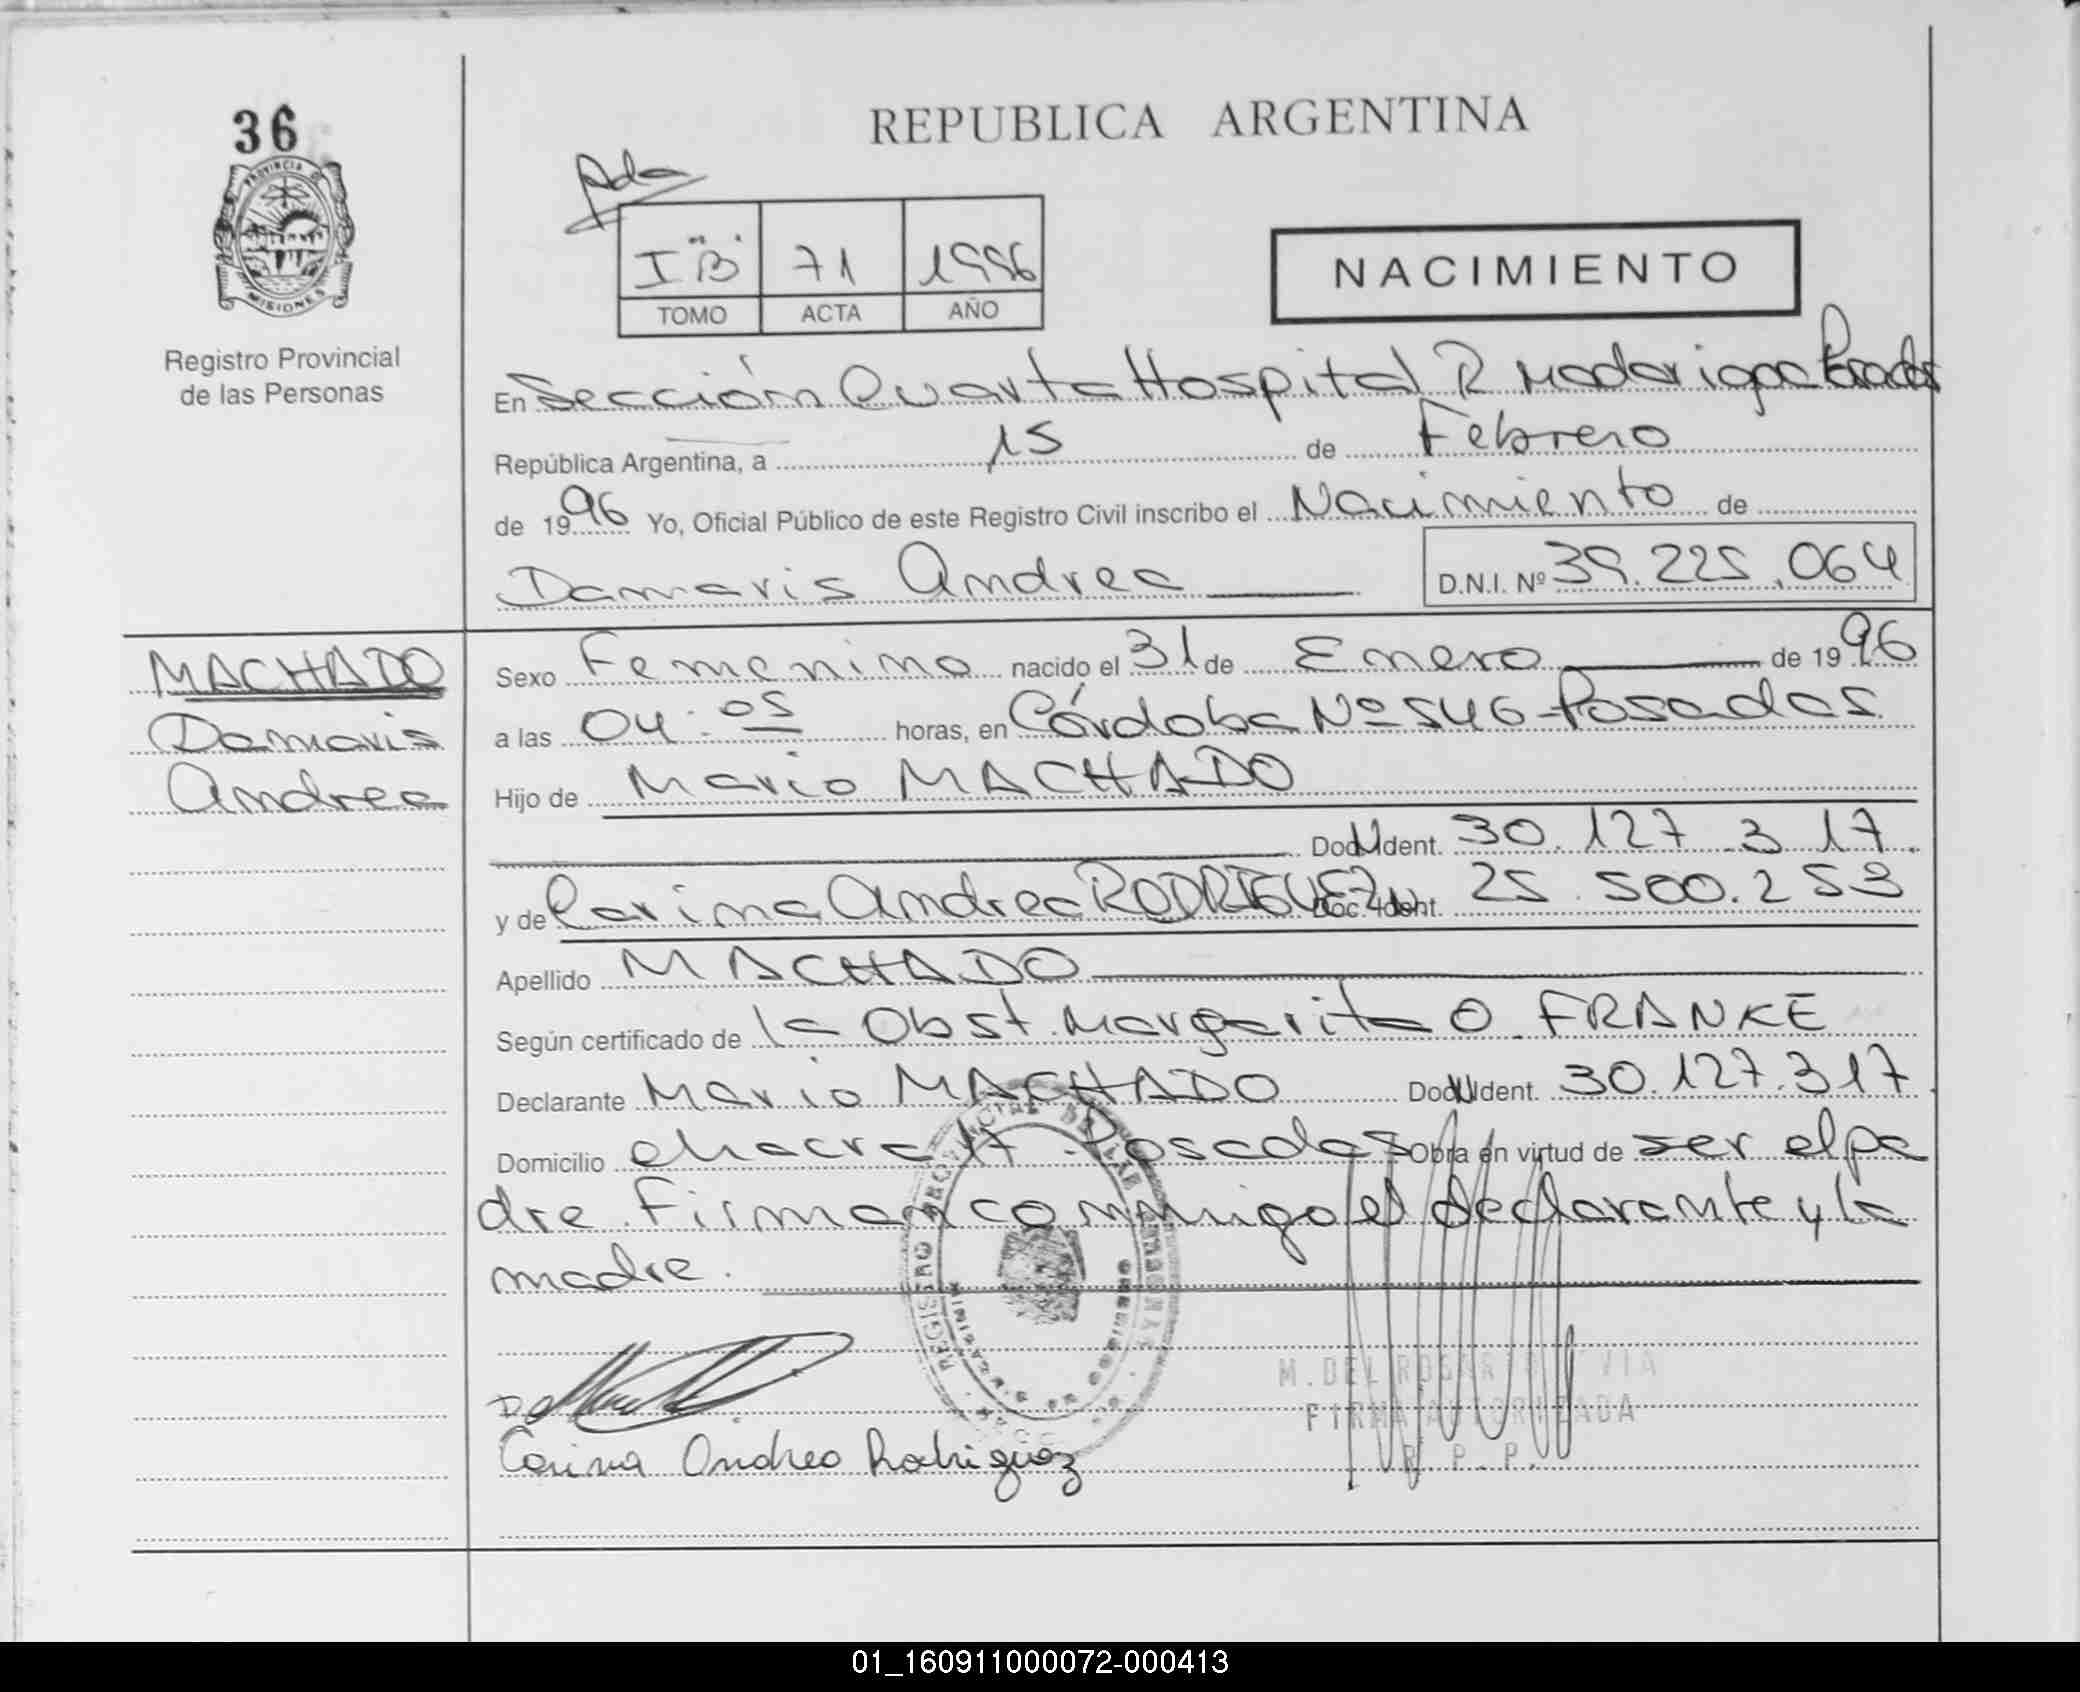 36
PROVINCIA D
MISIONES
Registro Provincial
de las Personas
REPUBLICA ARGENTINA
I "B" 71 1996
TOMO ACTA AÑO
NACIMIENTO
En Sección Cuarta Hospital R Madariaga Posadas
República Argentina, a 15 de Febrero
de 1996 Yo, Oficial Público de este Registro Civil inscribo el Nacimiento de
Damaris Andrea D.N.I. Nº 39.225.064
MACHADO
Damaris
Andrea
Sexo Femenino nacido el 31 de Enero de 1996
a las 04:05 horas, en Córdoba Nº 546-Posadas
Hijo de Mario MACHADO
Doc. Ident. 30.127.317.
y de Carina Andrea RODRIGUEZ Doc. Ident. 25.500.253
Apellido MACHADO
Según certificado de la Obst. Margarita O. FRANKE
Declarante Mario MACHADO Doc. Ident. 30.127.317.
Domicilio chacra 17 - Posadas Obra en virtud de ser el pa
dre. Firman conmigo el declarante y la
madre.
REGISTRO PROVINCIAL DE LAS PERSONAS
M. DEL ROSARIO
FIRMA AUTORIZADA
R. P. P.
Carina Andrea Rodriguez
01_160911000072-000413